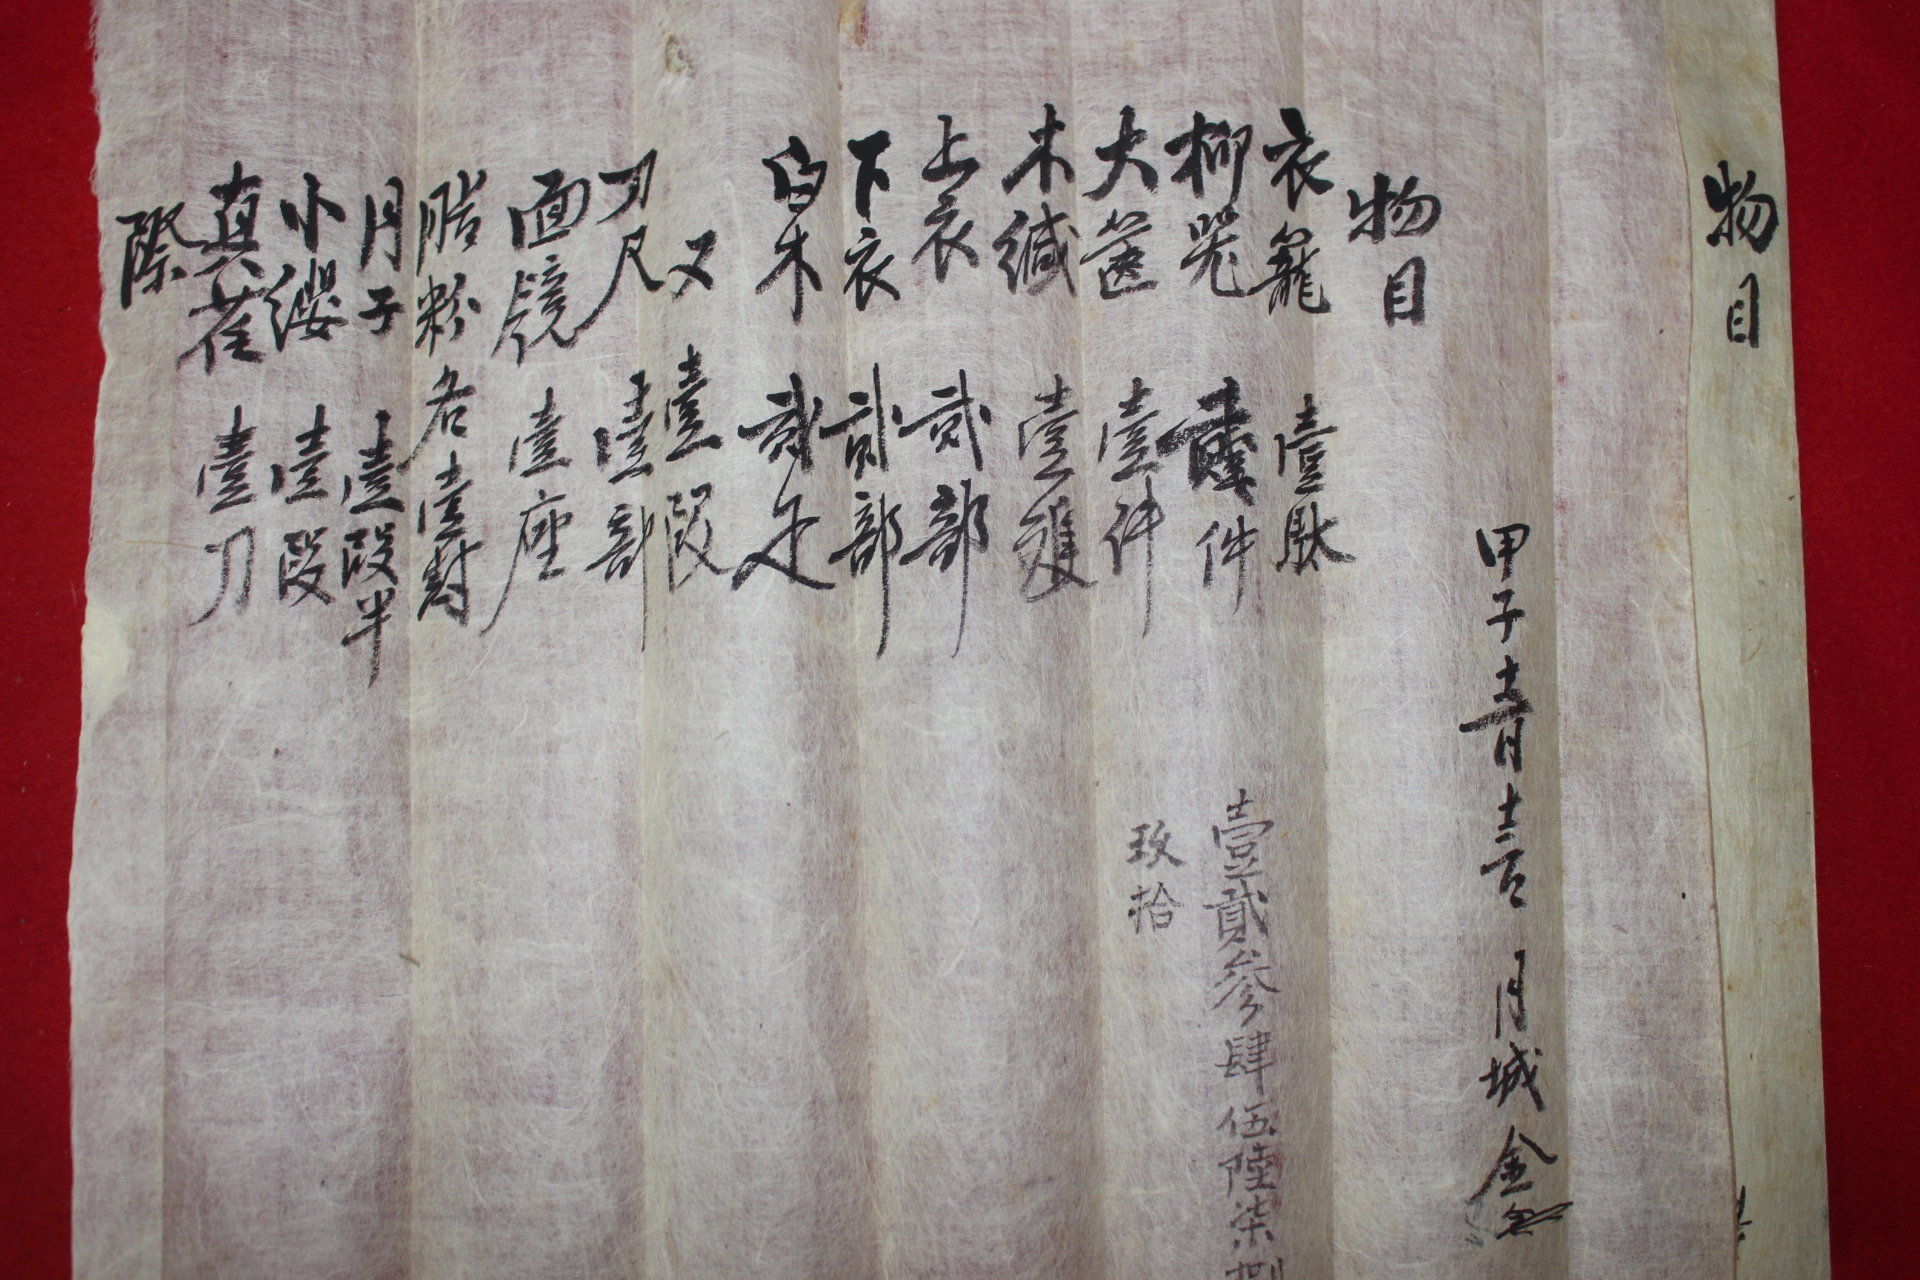 物目
甲子 月城 金
物目
衣籠 壹馱
柳器 貳件
大篋 壹件
木緘 壹雙
上衣 貳部
下衣 貳部
白木 貳疋
又 壹段
刀尺 壹部
面鏡 壹座
脂粉各壹封
月子 壹段半
小纓 壹段
真荏 壹刀
際
壹貳參肆伍陸柒捌
玖拾